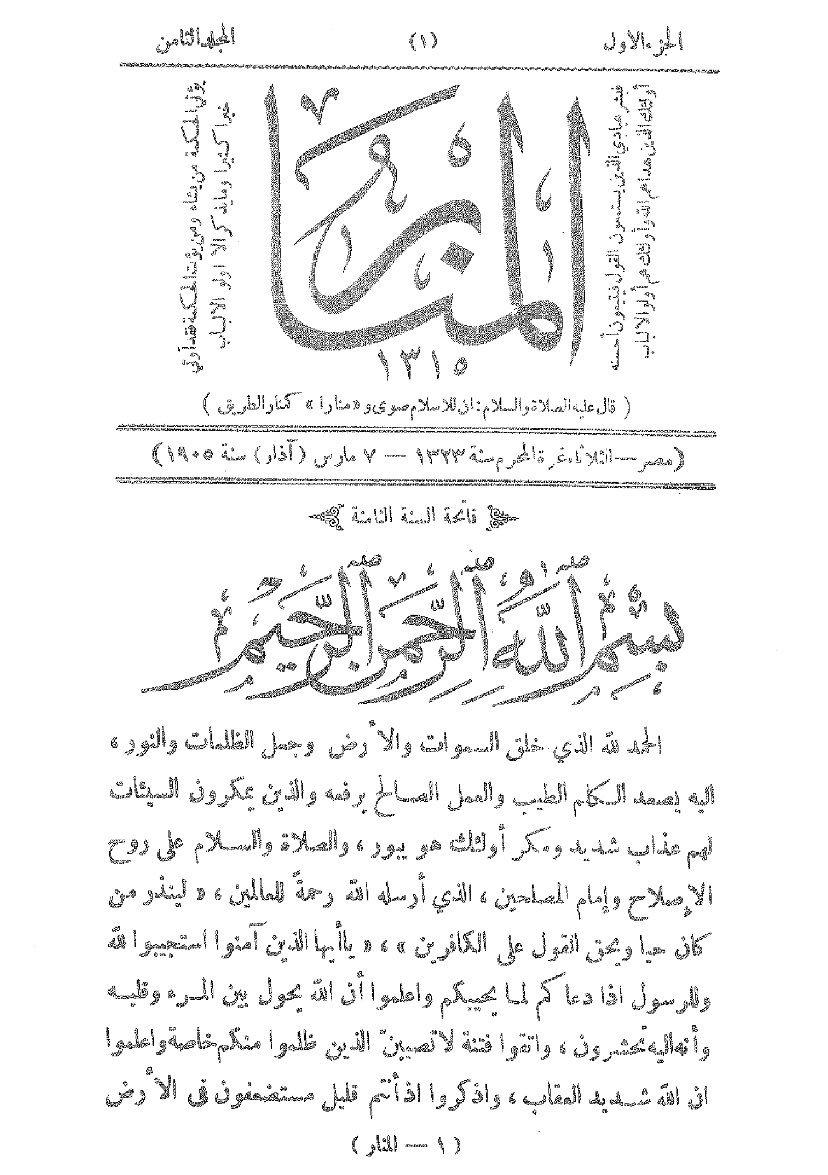 الجزء الاول (١) المجلد الثامن
يؤتي الحكمة من يشاء ومن يؤت الحكمة فقد أوتي
خيرا كثيرا وما يذكر إلا اولو الالباب
المنار
١٣١٥
فبشر عبادي الذين يستمعون القول فيتبعون أحسنه
أولئك الذين هداهم الله وأولئك هم أولو الالباب
( قال عليه الصلاة والسلام : ان للاسلام صوى و « منارا » كمنار الطريق )
(مصر — الثلاثاء غرة المحرم سنة ١٣٢٣ — ٧ مارس (آذار) سنة ١٩٠٥)
فاتحة السنة الثامنة
بِسْمِ اللهِ الرَّحْمٰنِ الرَّحِيمِ
الحمد لله الذي خلق السموات والأرض وجعل الظلمات والنور ،
اليه يصعد الكلم الطيب والعمل الصالح يرفعه والذين يمكرون السيئات
لهم عذاب شديد ومكر أولئك هو يبور ، والصلاة والسلام على روح
الإصلاح وإمام المصلحين ، الذي أرسله الله رحمةً للعالمين ، « لينذر من
كان حيا ويحق القول على الكافرين » ، « ياأيها الذين آمنوا استجيبوا لله
وللرسول اذا دعاكم لما يحييكم واعلموا أن الله يحول بين المرء وقلبه
وأنه اليه تحشرون ، واتقوا فتنة لا تصيبنّ الذين ظلموا منكم خاصة واعلموا
ان الله شديد العقاب ، واذكروا اذ أنتم قليل مستضعفون في الأرض
( ١ — المنار )